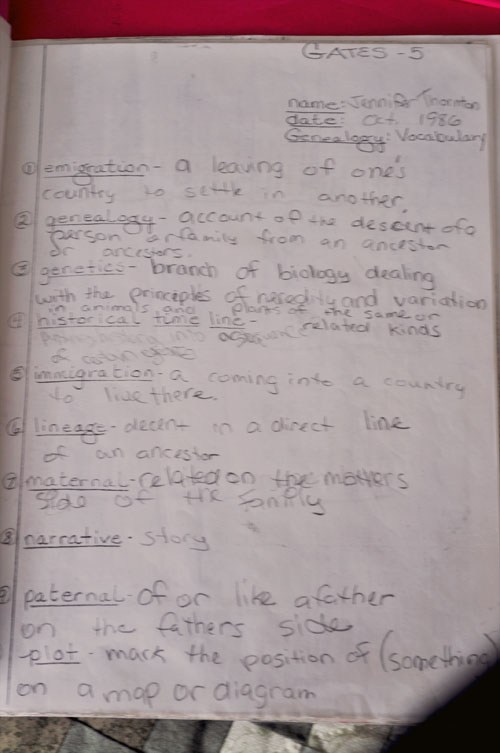 GATES - 5
name: Jennifer Thornton
date: Oct. 1986
Genealogy: Vocabulary
① emigration - a leaving of one's
country to settle in another.
② genealogy - account of the descent of a
person or family from an ancestor
or ancestors.
③ genetics - branch of biology dealing
with the principles of heredity and variation
in animals and plants of the same or
related kinds
④ historical time line -
history into a
of
⑤ immigration - a coming into a country
to live there.
⑥ lineage - decent in a direct line
of an ancestor
⑦ maternal - related on the mothers
side of the family
⑧ narrative - story
⑨ paternal - of or like a father
on the fathers side
plot - mark the position of (something)
on a map or diagram